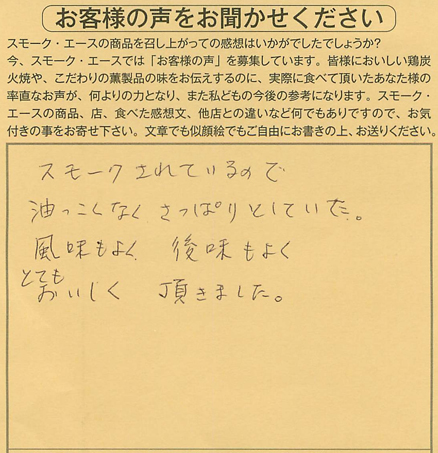 お客様の声をお聞かせください
スモーク・エースの商品を召し上がっての感想はいかがでしたでしょうか?
今、スモーク・エースでは「お客様の声」を募集しています。皆様においしい鶏炭
火焼や、こだわりの薫製品の味をお伝えするのに、実際に食べて頂いたあなた様の
率直なお声が、何よりの力となり、また私どもの今後の参考になります。スモーク・
エースの商品、店、食べた感想文、他店との違いなど何でもありですので、お気
付きの事をお寄せ下さい。文章でも似顔絵でもご自由にお書きの上、お送りください。
スモークされているので
油っこくなくさっぱりとしていた。
風味もよく 後味もよく
とても
おいしく 頂きました。